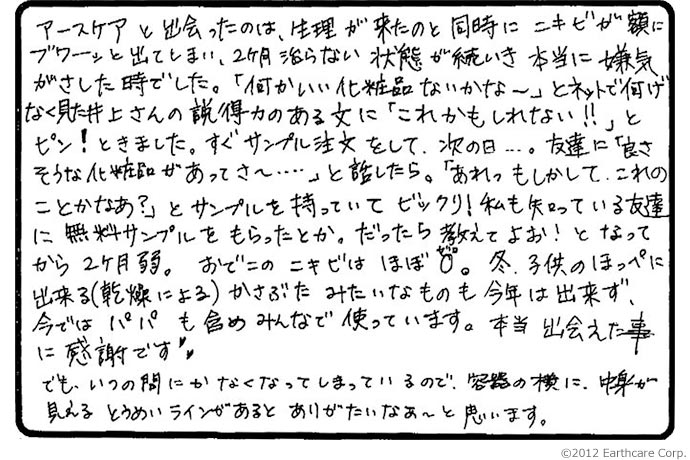 アースケアと出会ったのは、生理が来たのと同時にニキビが額に
ブワーッと出てしまい、2ヶ月治らない状態が続いき本当に嫌気
がさした時でした。「何かいい化粧品ないかな～」とネットで何げ
なく見た井上さんの説得力のある文に「これかもしれない!!」と
ピン!ときました。すぐサンプル注文をして、次の日…。友達に「良さ
そうな化粧品があってさ～……」と話したら。「あれっもしかして、これの
ことかなあ?」とサンプルを持っていてビックリ!私も知っている友達
に無料サンプルをもらったとか。だったら教えてよお!となって
から2ヶ月弱。おでこのニキビはほぼ0。冬、子供のほっぺに
ゼロ
出来る(乾燥による)かさぶたみたいなものも今年は出来ず、
今ではパパも含めみんなで使っています。本当出会えた事
に感謝です♥
でも、いつの間にかなくなってしまっているので、容器の横に、中身が
見えるとうめいラインがあるとありがたいなあ～と思います。
©2012 Earthcare Corp.